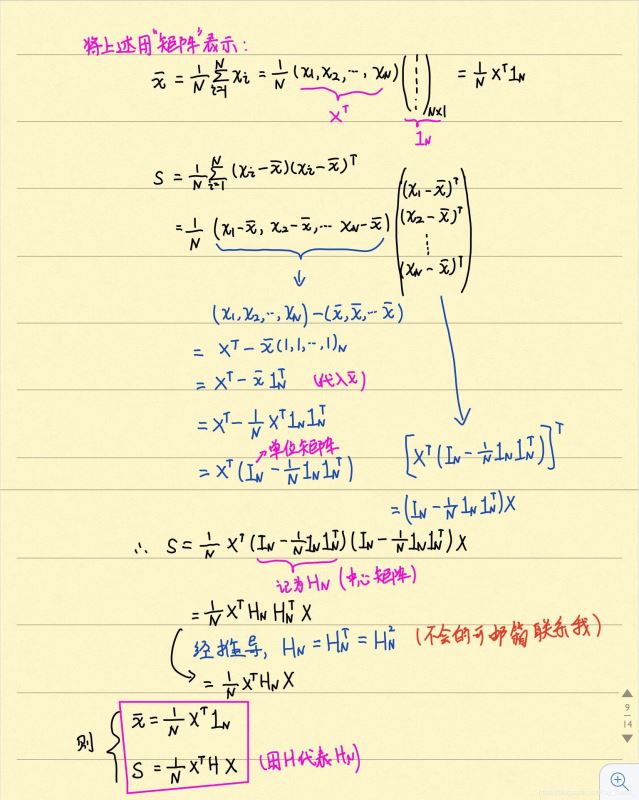 将上述用"矩阵"表示:
x̄ = 1/N ∑_{i=1}^{N} xᵢ = 1/N (x₁, x₂, ⋯, x_N) (1 ⋮ 1)_{N×1} = 1/N Xᵀ 1_N
Xᵀ 1_N
S = 1/N ∑_{i=1}^{N} (xᵢ - x̄)(xᵢ - x̄)ᵀ
= 1/N (x₁ - x̄, x₂ - x̄, ⋯ x_N - x̄)
(x₁ - x̄)ᵀ
(x₂ - x̄)ᵀ
⋮
(x_N - x̄)ᵀ
(x₁, x₂, ⋯, x_N) - (x̄, x̄, ⋯ x̄)
= Xᵀ - x̄ (1, 1, ⋯, 1)_N
= Xᵀ - x̄ 1_Nᵀ (代入x̄)
= Xᵀ - 1/N Xᵀ 1_N 1_Nᵀ
单位矩阵
= Xᵀ (I_N - 1/N 1_N 1_Nᵀ)
[Xᵀ (I_N - 1/N 1_N 1_Nᵀ)]ᵀ
= (I_N - 1/N 1_N 1_Nᵀ) X
∴ S = 1/N Xᵀ (I_N - 1/N 1_N 1_Nᵀ) (I_N - 1/N 1_N 1_Nᵀ) X
记为H_N (中心矩阵)
= 1/N Xᵀ H_N H_Nᵀ X
经推导, H_N = H_Nᵀ = H_N² (不会的可邮箱联系我)
= 1/N Xᵀ H_N X
则
x̄ = 1/N Xᵀ 1_N
S = 1/N Xᵀ H X (用H代表H_N)
9
14